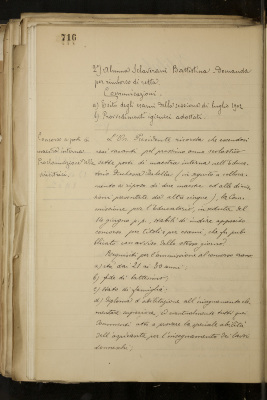 716
2°) Alunna Schiavoni Battistina. Domanda
per rimborso di retta.
Comunicazioni.
a) Esito degli esami della sessione di luglio 1902
b) Provvedimenti igienici adottati.
Concorso a posti di
maestra interna
L'Ill. Presidente ricorda che essendosi
resi vacanti pel prossimo anno scolastico
sette posti di maestra interna nell'Educa-
di riposo di due maestre ed alle dimis-
sioni presentate dalle altre cinque), la Com-
missione per l'Educatorio, in seduta del
14 giugno p.p., stabilì di indire apposito
concorso per titoli e per esami, che fu pub-
blicato con avviso dello stesso giorno.
Requisiti per l'ammissione al concorso erano
a) età dai 21 ai 30 anni;
b) fede di battesimo;
c) stato di famiglia;
d) diploma d'abilitazione all'insegnamento ele-
mentare superiore, ed eventualmente tutti quei
documenti atti a provare la speciale abilità
dell'aspirante per l'insegnamento dei lavori
donneschi.